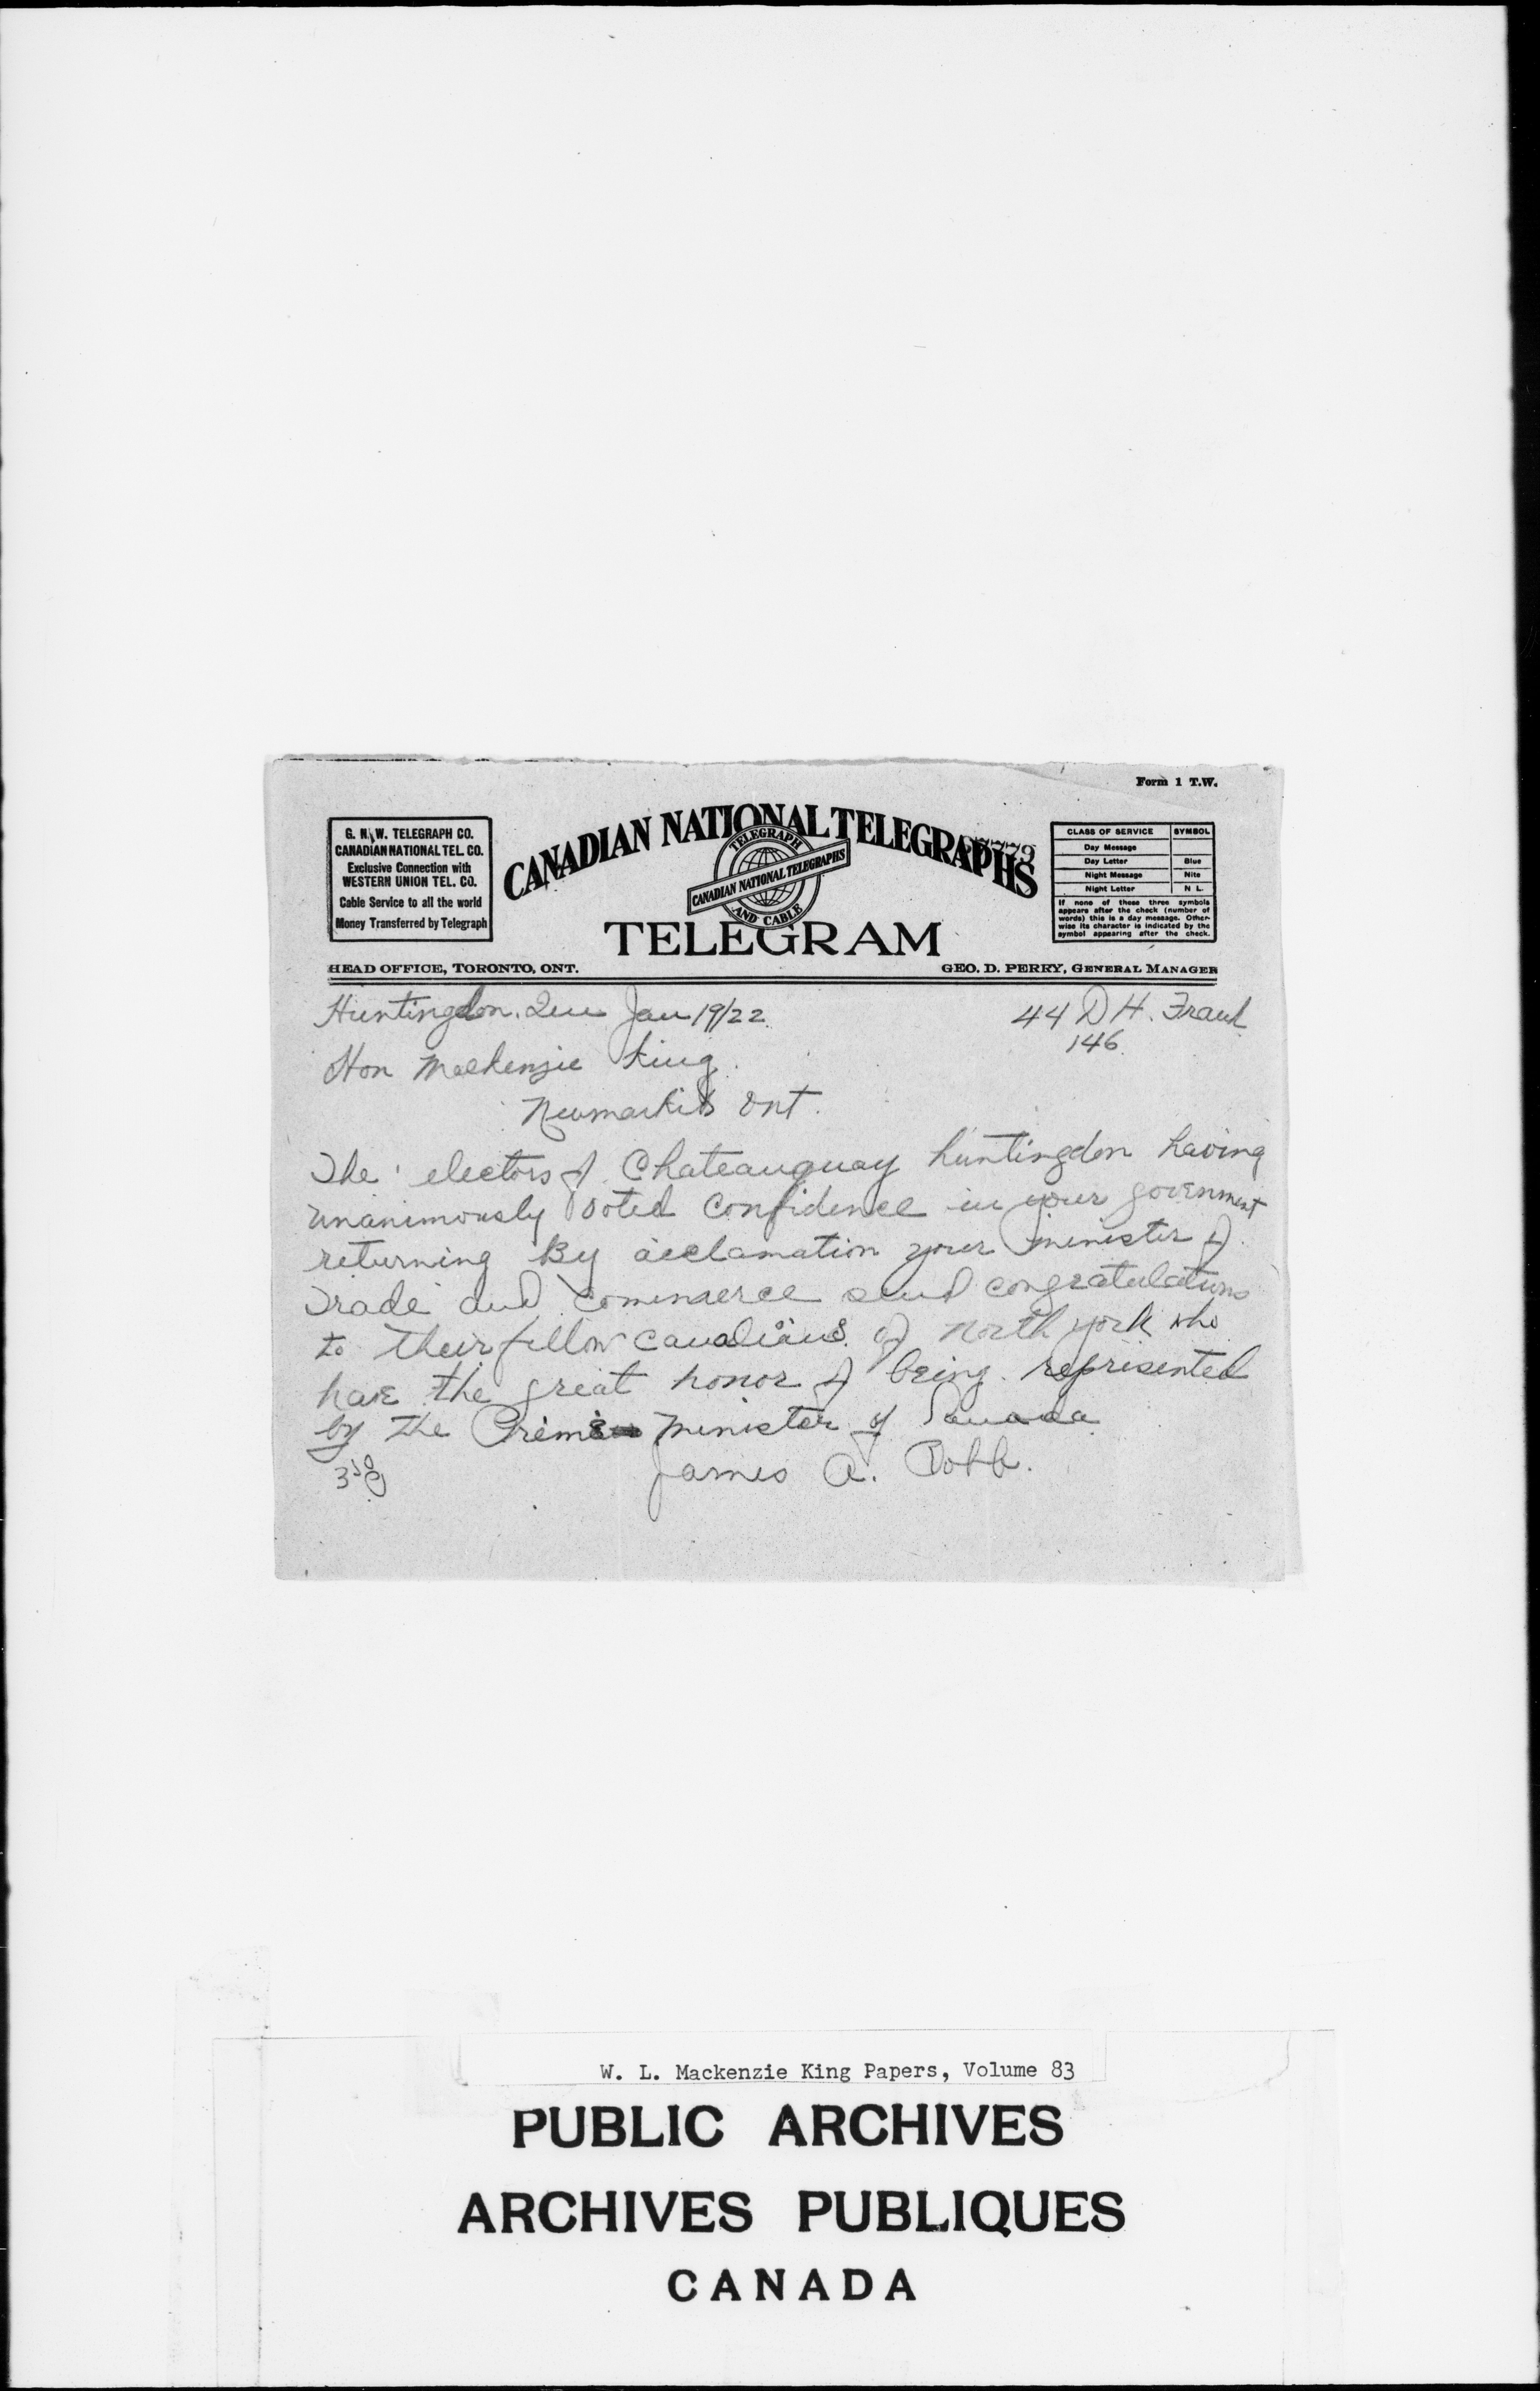 Form 1 T.W.
G. N. W. TELEGRAPH CO.
CANADIAN NATIONAL TEL. CO.
Exclusive Connection with
WESTERN UNION TEL. CO.
Cable Service to all the world
Money Transferred by Telegraph
CANADIAN NATIONAL TELEGRAPHS
TELEGRAPH
CANADIAN NATIONAL TELEGRAPHS
AND CABLE
TELEGRAM
CLASS OF SERVICE SYMBOL
Day Message
Day Letter Blue
Night Message Nite
Night Letter N L
If none of these three symbols
appears after the check (number of
words) this is a day message. Other-
wise its character is indicated by the
symbol appearing after the check.
HEAD OFFICE, TORONTO, ONT. GEO. D. PERRY, GENERAL MANAGER
Huntingdon. Que Jan 19/22 44 D H. Frank
146
Hon Mackenzie King
Newmarket Ont.
The electors of Chateauguay huntingdon having
unanimously voted confidence in your government
returning By acclamation your minister of
Trade and Commerce send congratulations
to their fellow canadians of north york who
have the great honor of being represented
by the Prime minister of Canada
James A. Robb.
W. L. Mackenzie King Papers, Volume 83
PUBLIC ARCHIVES
ARCHIVES PUBLIQUES
CANADA